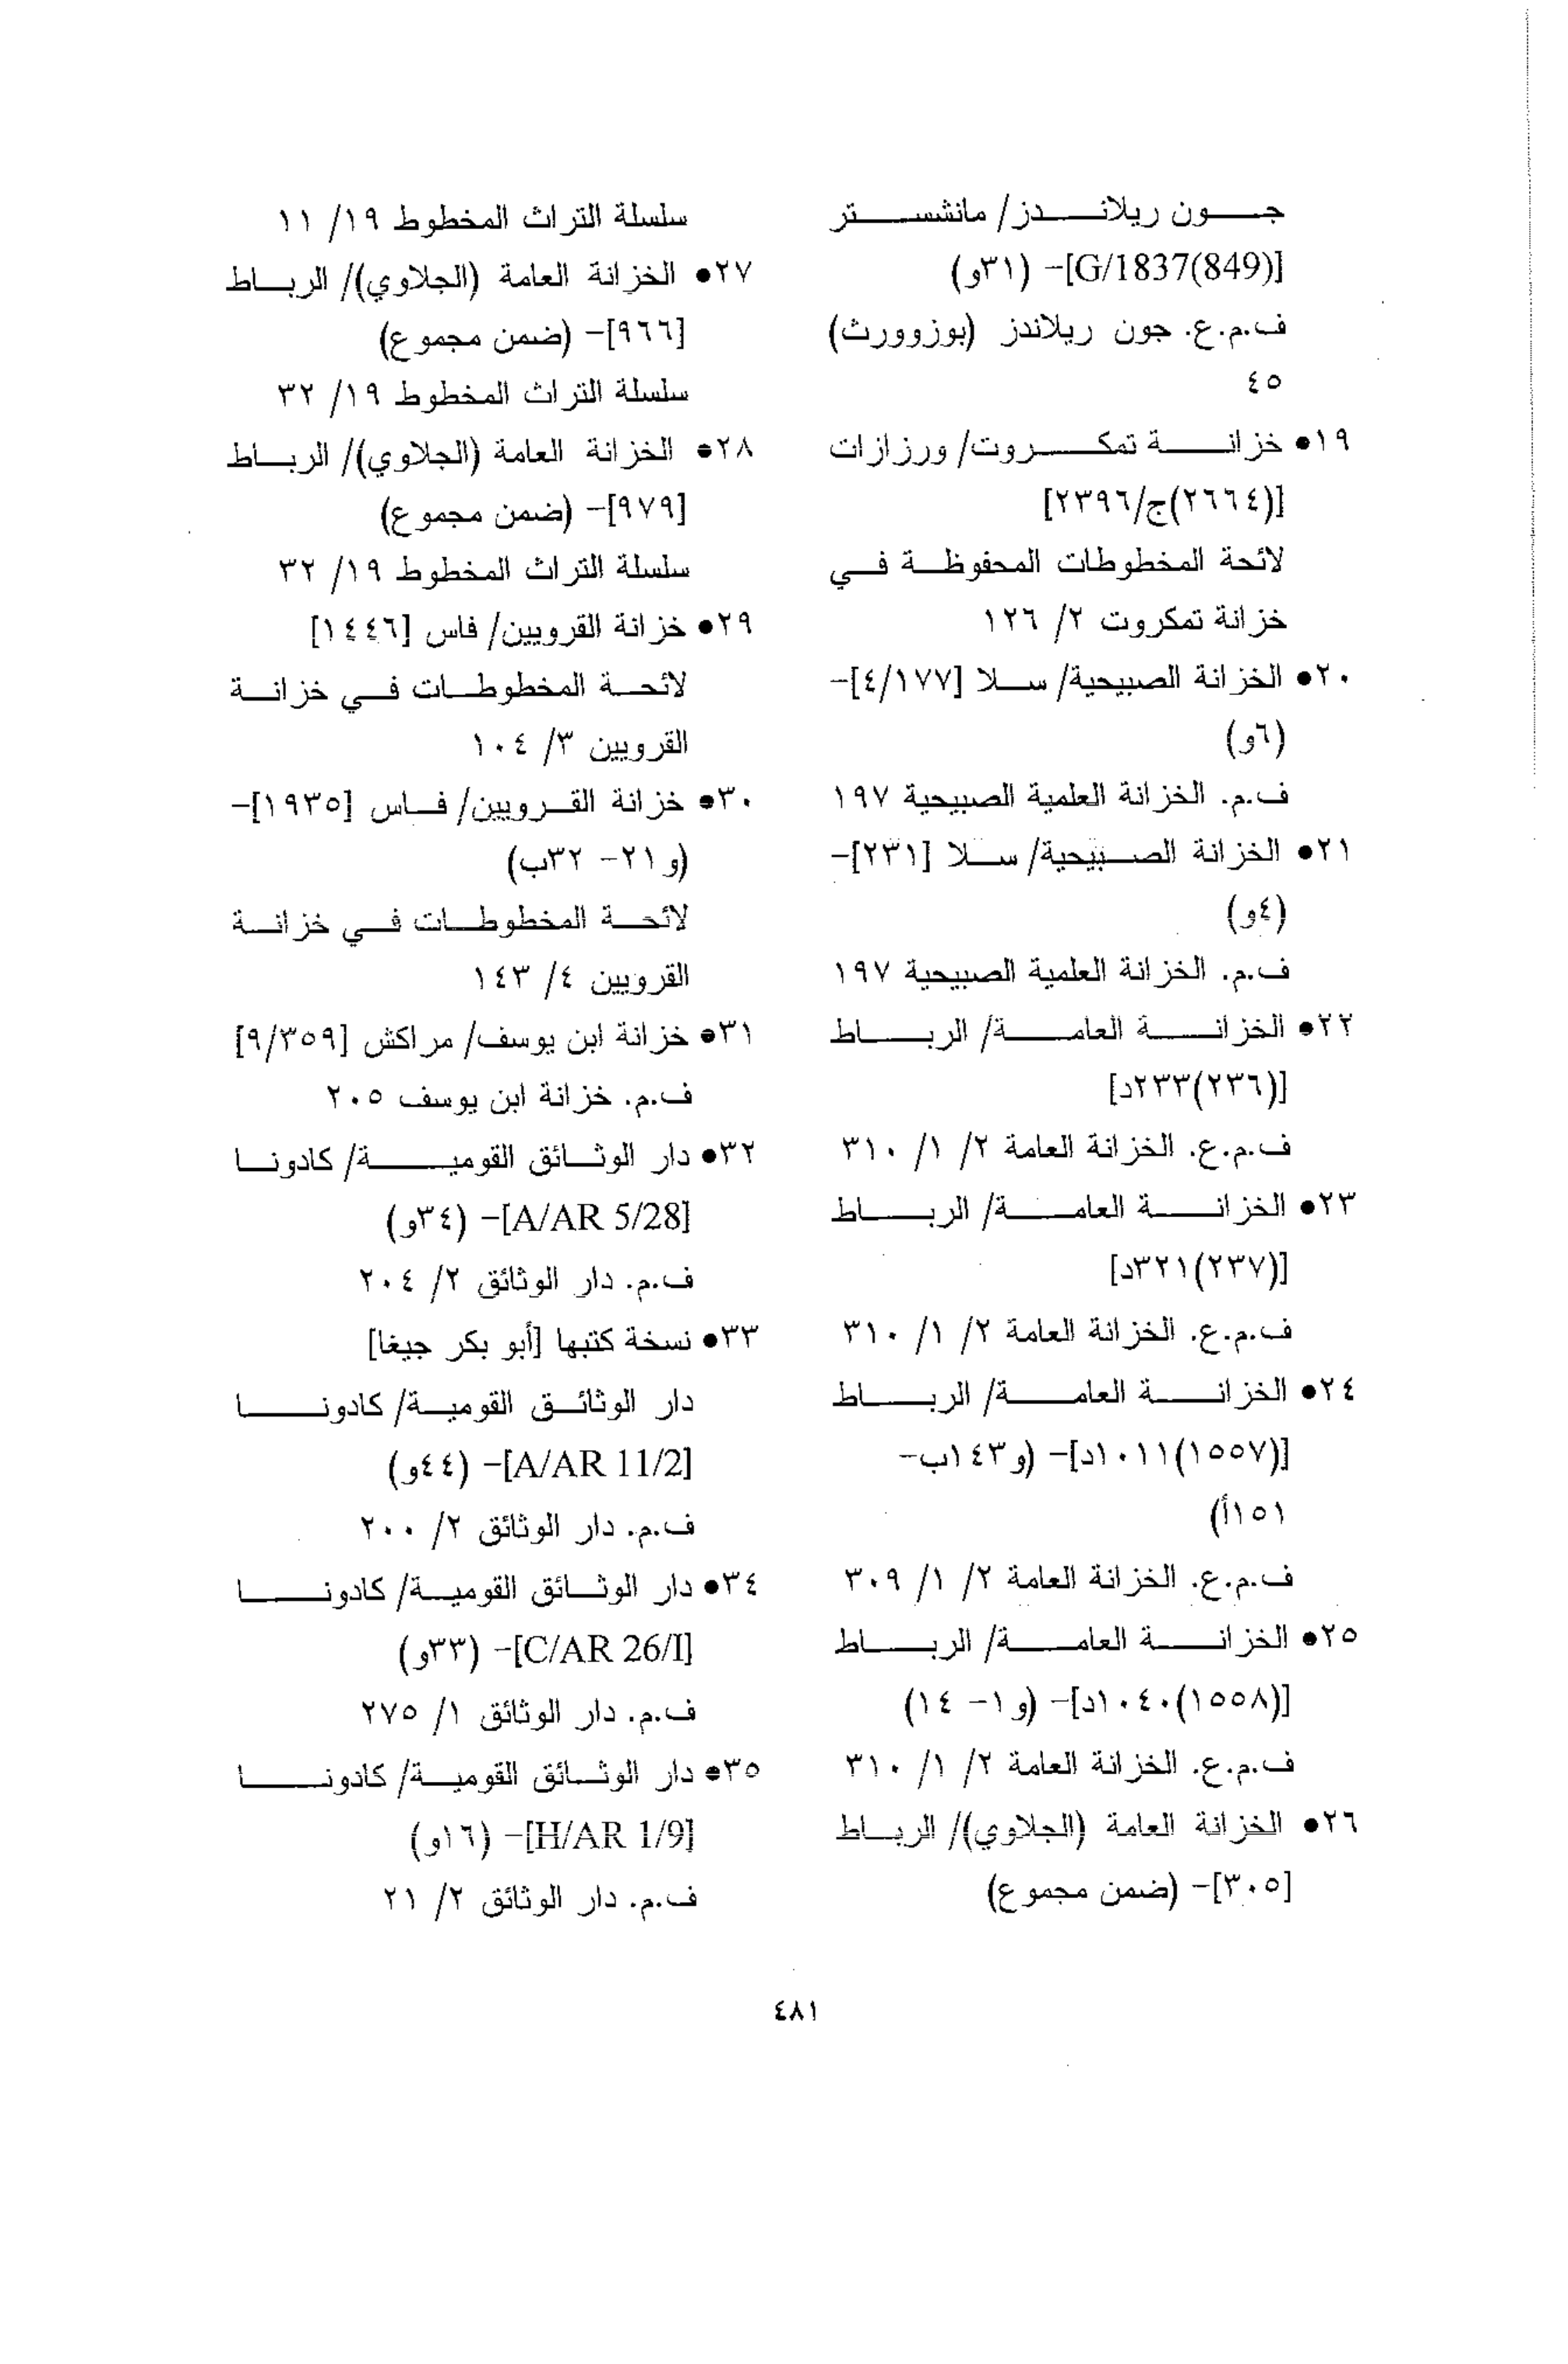 جون ريلاندز/ مانشستر
[G/1837(849)]- (٣١و)
ف.م.ع. جون ريلاندز (بوزوورث)
٤٥
١٩• خزانة تمكروت/ ورزازات
[(٢٦٦٤)ج/٢٣٩٦]
لائحة المخطوطات المحفوظة في
خزانة تمكروت ٢/ ١٢٦
٢٠• الخزانة الصبيحية/ سلا [٤/١٧٧]-
(٦و)
ف.م. الخزانة العلمية الصبيحية ١٩٧
٢١• الخزانة الصبيحية/ سلا [٢٣١]-
(٤و)
ف.م. الخزانة العلمية الصبيحية ١٩٧
٢٢• الخزانة العامة/ الرباط
[(٢٣٦)٢٣٣د]
ف.م.ع. الخزانة العامة ٢/ ١/ ٣١٠
٢٣• الخزانة العامة/ الرباط
[(٢٣٧)٣٢١د]
ف.م.ع. الخزانة العامة ٢/ ١/ ٣١٠
٢٤• الخزانة العامة/ الرباط
[(١٥٥٧)١٠١١د]- (و١٤٣ب-
١٥١أ)
ف.م.ع. الخزانة العامة ٢/ ١/ ٣٠٩
٢٥• الخزانة العامة/ الرباط
[(١٥٥٨)١٠٤٠د]- (و١- ١٤)
ف.م.ع. الخزانة العامة ٢/ ١/ ٣١٠
٢٦• الخزانة العامة (الجلاوي)/ الرباط
[٣٠٥]- (ضمن مجموع)
سلسلة التراث المخطوط ١٩/ ١١
٢٧• الخزانة العامة (الجلاوي)/ الرباط
[٩٦٦]- (ضمن مجموع)
سلسلة التراث المخطوط ١٩/ ٣٢
٢٨• الخزانة العامة (الجلاوي)/ الرباط
[٩٧٩]- (ضمن مجموع)
سلسلة التراث المخطوط ١٩/ ٣٢
٢٩• خزانة القرويين/ فاس [١٤٤٦]
لائحة المخطوطات في خزانة
القرويين ٣/ ١٠٤
٣٠• خزانة القرويين/ فاس [١٩٣٥]-
(و٢١- ٣٢ب)
لائحة المخطوطات في خزانة
القرويين ٤/ ١٤٣
٣١• خزانة ابن يوسف/ مراكش [٩/٣٥٩]
ف.م. خزانة ابن يوسف ٢٠٥
٣٢• دار الوثائق القومية/ كادونا
[A/AR 5/28]- (٣٤و)
ف.م. دار الوثائق ٢/ ٢٠٤
٣٣• نسخة كتبها [أبو بكر جيغا]
دار الوثائق القومية/ كادونا
[A/AR 11/2]- (٤٤و)
ف.م. دار الوثائق ٢/ ٢٠٠
٣٤• دار الوثائق القومية/ كادونا
[C/AR 26/I]- (٣٣و)
ف.م. دار الوثائق ١/ ٢٧٥
٣٥• دار الوثائق القومية/ كادونا
[H/AR 1/9]- (١٦و)
ف.م. دار الوثائق ٢/ ٢١
٤٨١